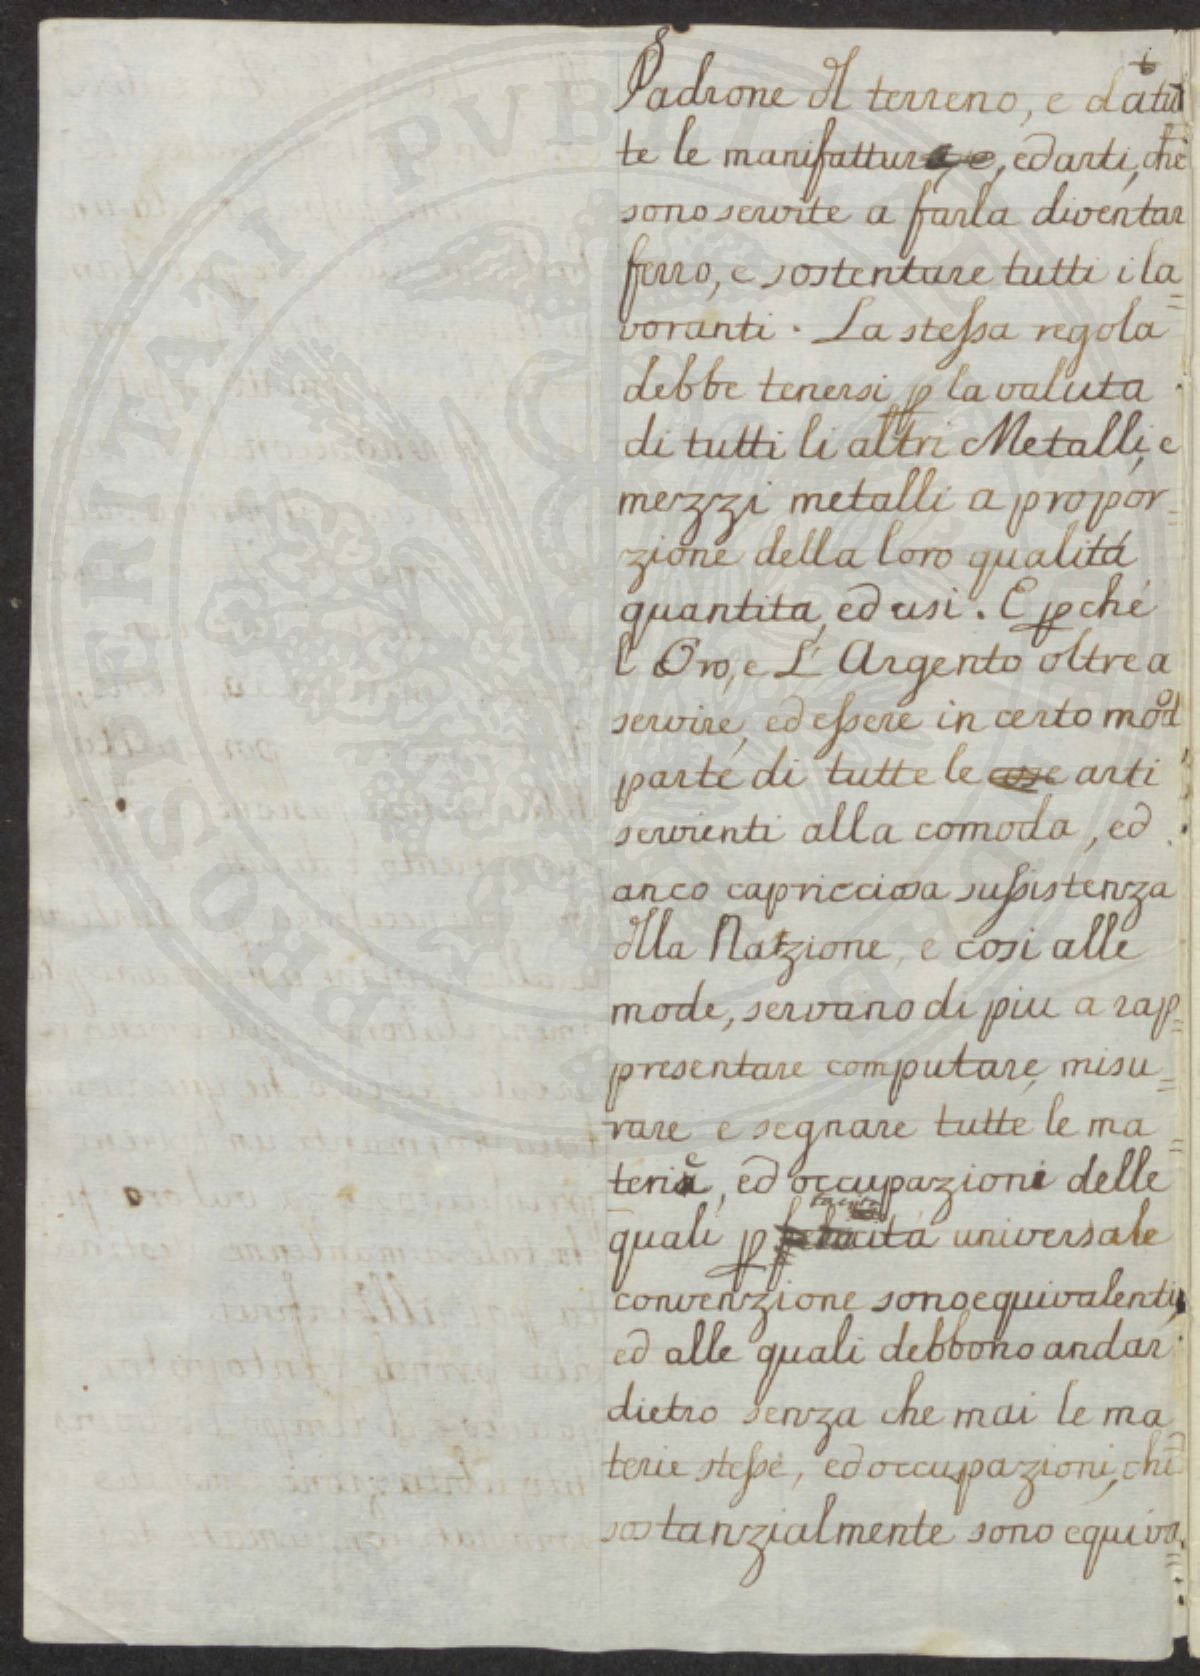 6
Padrone del terreno, e da tut
te le manifatture, ed arti, che
sono servite a farla diventar
ferro, e sostentare tutti i la=
voranti. La stessa regola
debbe tenersi p la valuta
di tutti li altri Metalli, e
mezzi metalli a propor=
zione della loro qualitá
quantita, ed usi. E pché
l'Oro, e L'Argento oltre a
servire, ed essere in certo modo
parte di tutte le cose arti
servienti alla comoda, ed
anco capricciosa sussistenza
della Natzione, e cosi alle
mode, servano di piu a rap=
presentare computare, misu=
rare e segnare tutte le ma=
terie, ed occupazioni delle
quali p tacita universale
convenzione sono equivalenti,
ed alle quali debbono andar
dietro senza che mai le ma
terie stesse, ed occupazioni, che
sostanzialmente sono equiva=
PROSPERITATI PVBLICAE